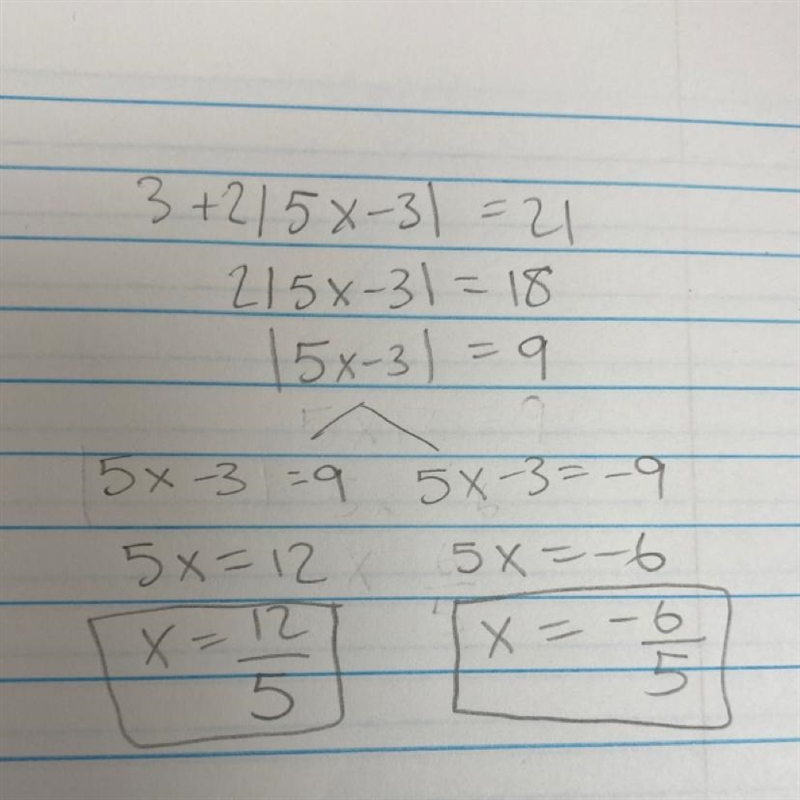 3 + 2|5x - 3| = 21
2|5x - 3| = 18
|5x - 3| = 9
5x - 3 = 9    5x - 3 = -9
5x = 12    5x = -6
x = 12/5    x = -6/5